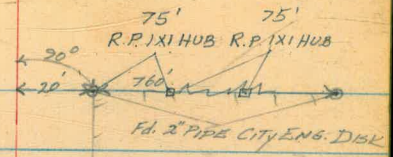 75' 75'
R.P. 1X1 HUB R.P. 1X1 HUB
90°
20' 760'
Fd. 2" PIPE CITY ENG. DISK